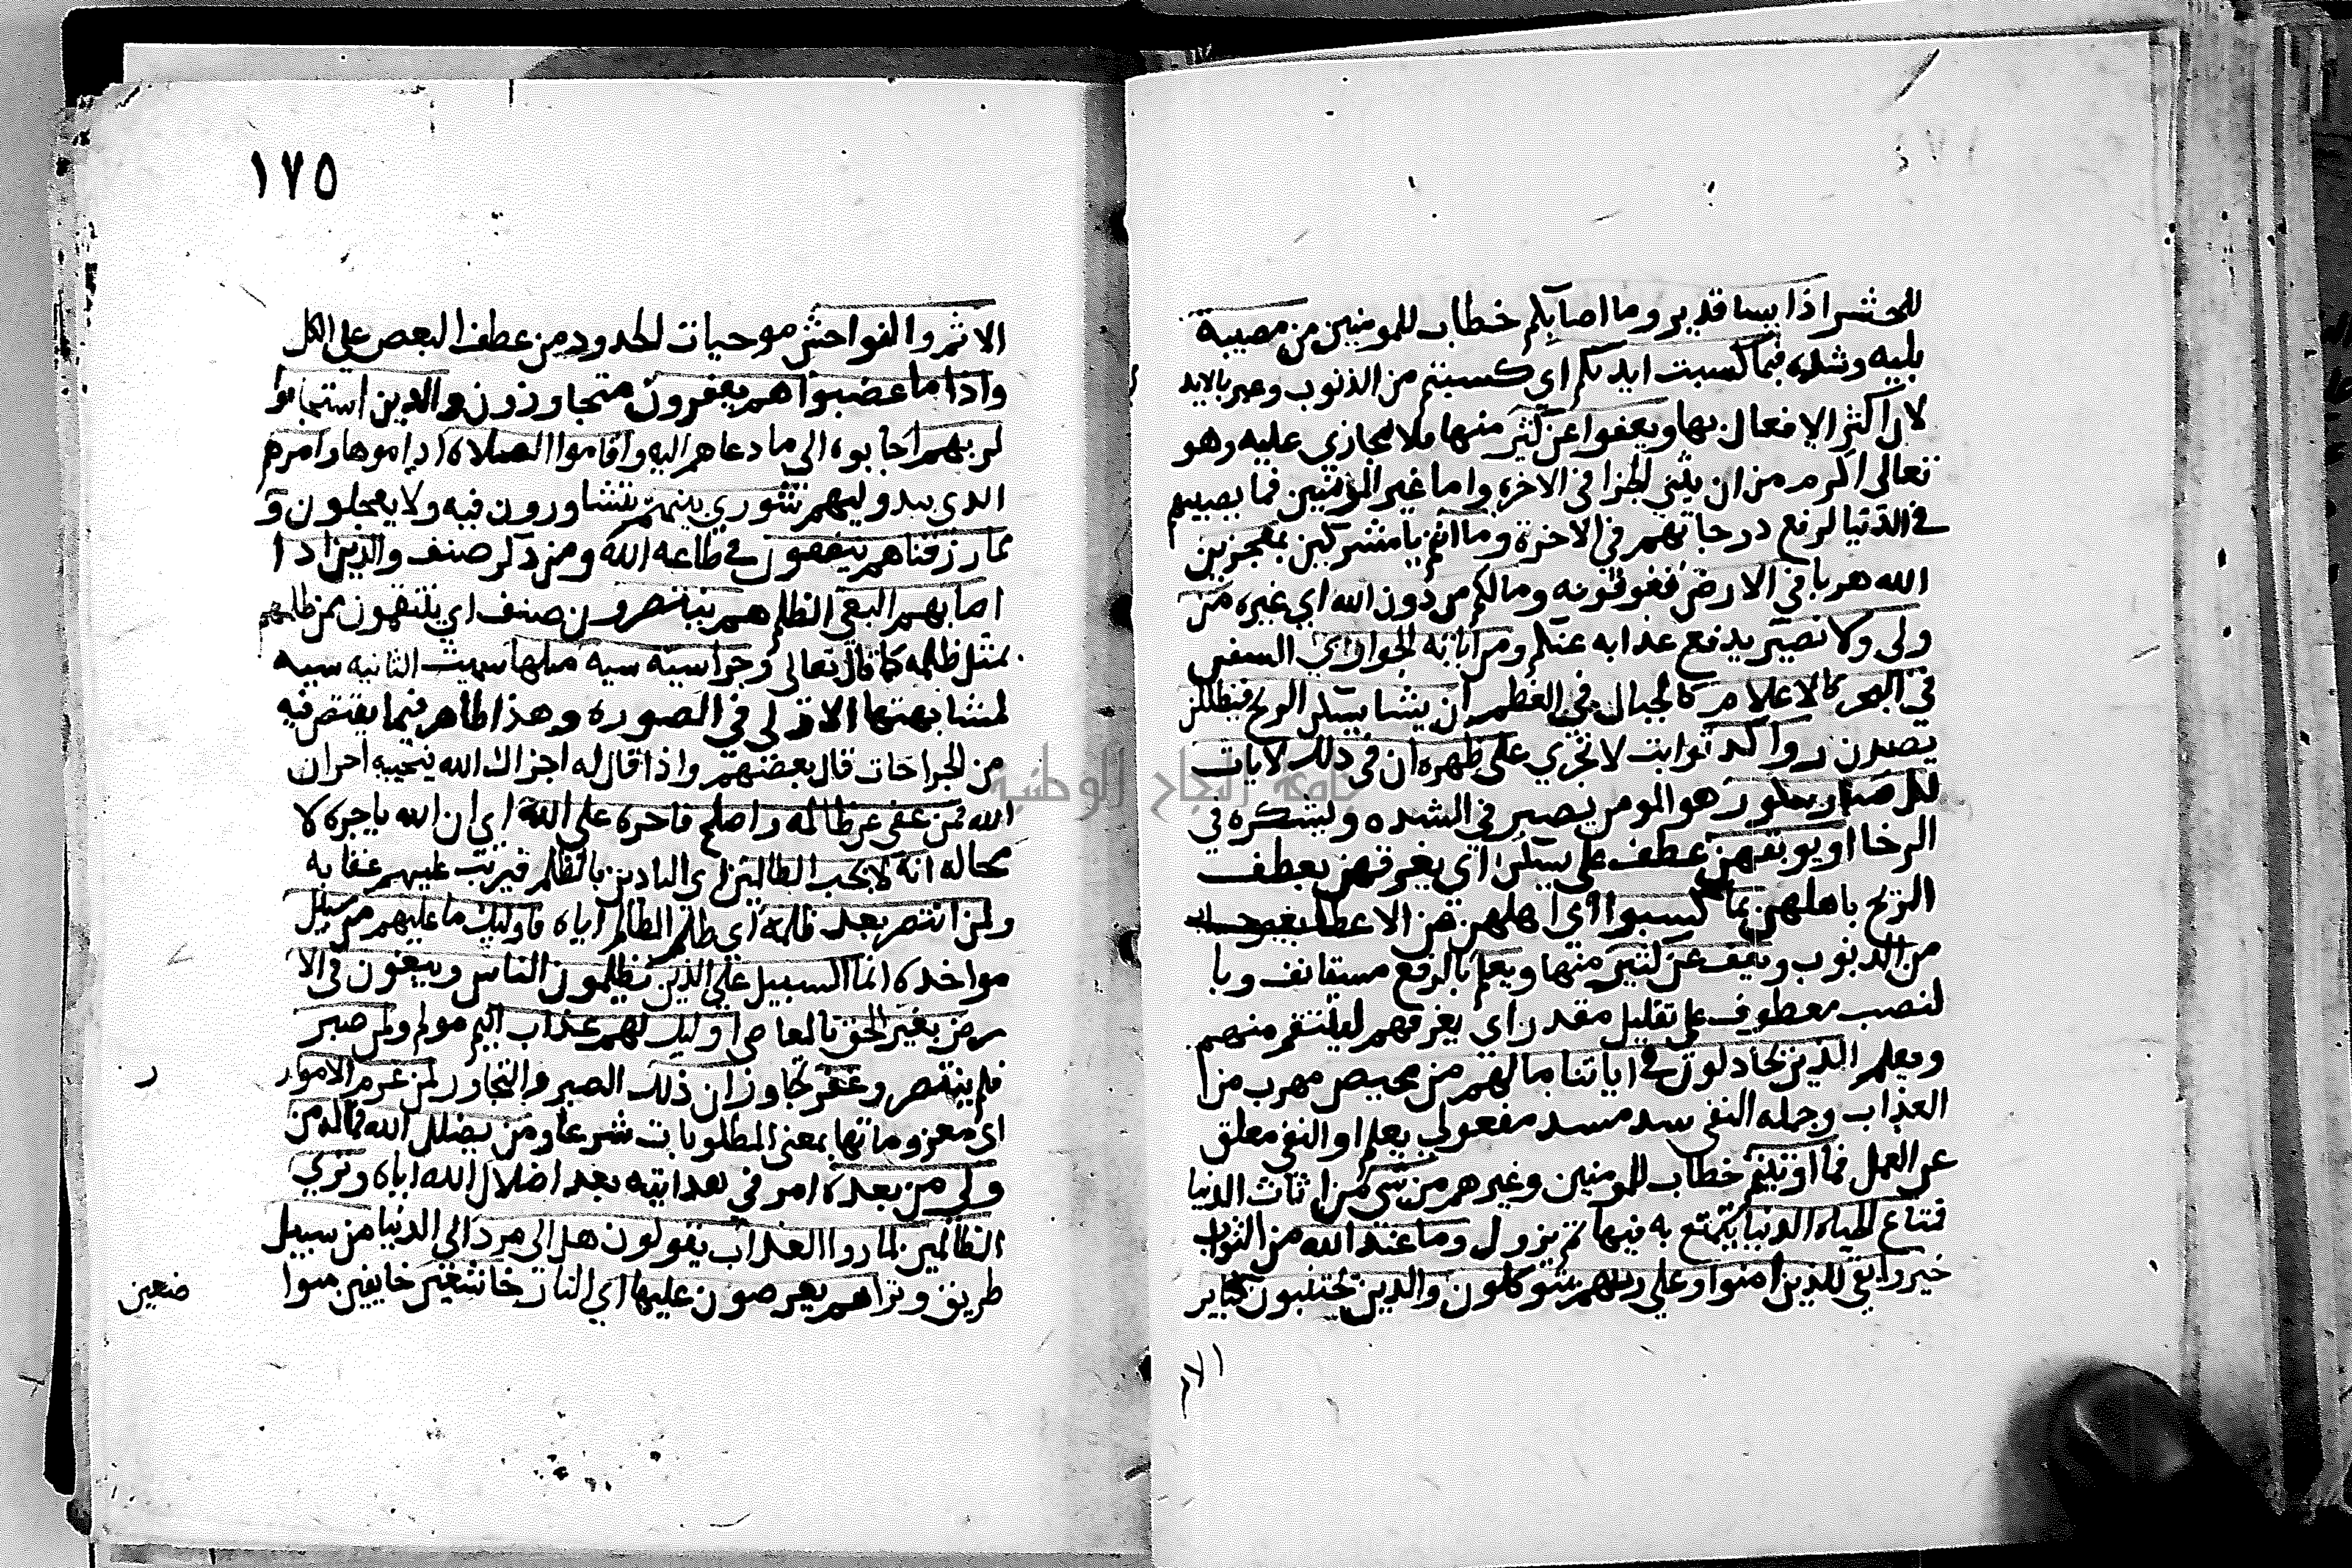 للحشر اذا يشا قدير وما اصابكم خطاب للمومنين من مصيبة
بليه وشده فبما كسبت ايديكم اي كسبتم من الذنوب وعبر بالايد
لان اكثر الافعال بها ويعفوا عن كثير منها فلا يجازي عليه وهو
تعالى اكرم من ان يثني الجزا في الاخره واما غير المؤمنين فما يصيبهم
في الدنيا لرفع درجاتهم في الاخرة وما انتم يا مشركين بمعجزين
الله هربا في الارض فتفوتونه وما لكم من دون الله اي غيره من
ولي ولا نصير يدفع عذابه عنكم ومن اياته الجواري السفن
في البحر كالاعلام كالجبال في العظم ان يشا يسكن الريح فيظللن
يصرن رواكد ثوابت لا تجري على ظهره ان في ذلك لايات
لكل صبار شكور هو المومن يصبر في الشده ويشكره في
الرخا او يوبقهن عطف على يسكن اي يغرقهن بعطف
الريح باهلهن بما كسبوا اي اهلهن من
من الذنوب ويعف عن كثير منها ويعلم بالرفع مستانف وبا
لنصب معطوف على تعليل مقدر اي يغرقهم لينتقم منهم
ويعلم الذين يجادلون في اياتنا ما لهم من محيص مهرب من ا
العذاب وجمله النفي سد مسد مفعولي يعلم او النفي معلق
عن العمل فما اوتيتم خطاب للمومنين وغيرهم من شي من اثاث الدنيا
فمتاع الحياه الدنيا يتمتع به فيها ثم يزول وما عند الله من الثواب
خير وابقي للذين امنوا وعلى ربهم يتوكلون والذين يجتنبون كباير
الاثم
١٧٥
الاثم والفواحش موجبات الحدود من عطف البعض على الكل
واذا ما غضبوا هم يغفرون متجاوزون والذين استجابوا
لربهم اجابوه الى ما دعاهم اليه واقاموا الصلاه اداموها وامرهم
الذي يبدو ليهم شوري بينهم يتشاورون فيه ولا يعجلون و
مما رزقناهم ينفقون في طاعه الله ومن ذكر صنف والذين اذا
اصابهم البغي الظلم هم ينتصرون صنف اي ينتقمون ممن ظلمهم
بمثل ظلمه كما قال تعالى وجزا سيه سيه مثلها سميت الثانيه سيه
لمشابهتها الاولى في الصوره وهذا ظاهر فيما يقتص فيه
من الجراحات قال بعضهم واذا قال له اجزاك الله يجيبه اجزاك
الله فمن عفى عن ظالمه واصلح فاجره على الله اي ان الله ياجره لا
محاله انه لا يحب الظالمين اي البادين بالظلم فيرتب عليهم عقابه
ولمن انتصر بعد ظلمه اي ظلم الظالم اياه فاوليك ما عليهم من سبيل
مواخذه انما السبيل على الذين يظلمون الناس ويبغون في الا
رض بغير الحق بالمعاصي اوليك لهم عذاب اليم مولم ولمن صبر
فلم ينتصر وغفر تجاوز ان ذلك الصبر والتجاوز لمن عزم الامور
اي معزوماتها بمعنى المطلوبات شرعا ومن يضلل الله فما له من
ولي من بعده امر في هدايته بعد اضلال الله اياه وتري
الظالمين لما روا العذاب يقولون هل الى مرد الى الدنيا من سبيل
طريق وتراهم يعرضون عليها اي النار خاشعين خايفين متوا
ضعين